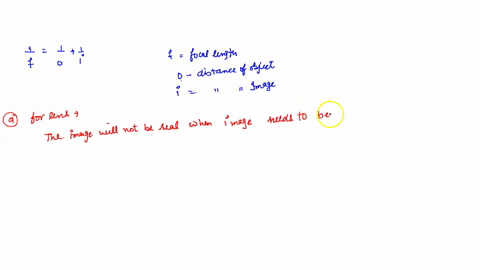 1/f = 1/o + 1/i
f = focal length
o - distance of object
i = " " Image
(a) for lens →
The image will not be real when image needs to be